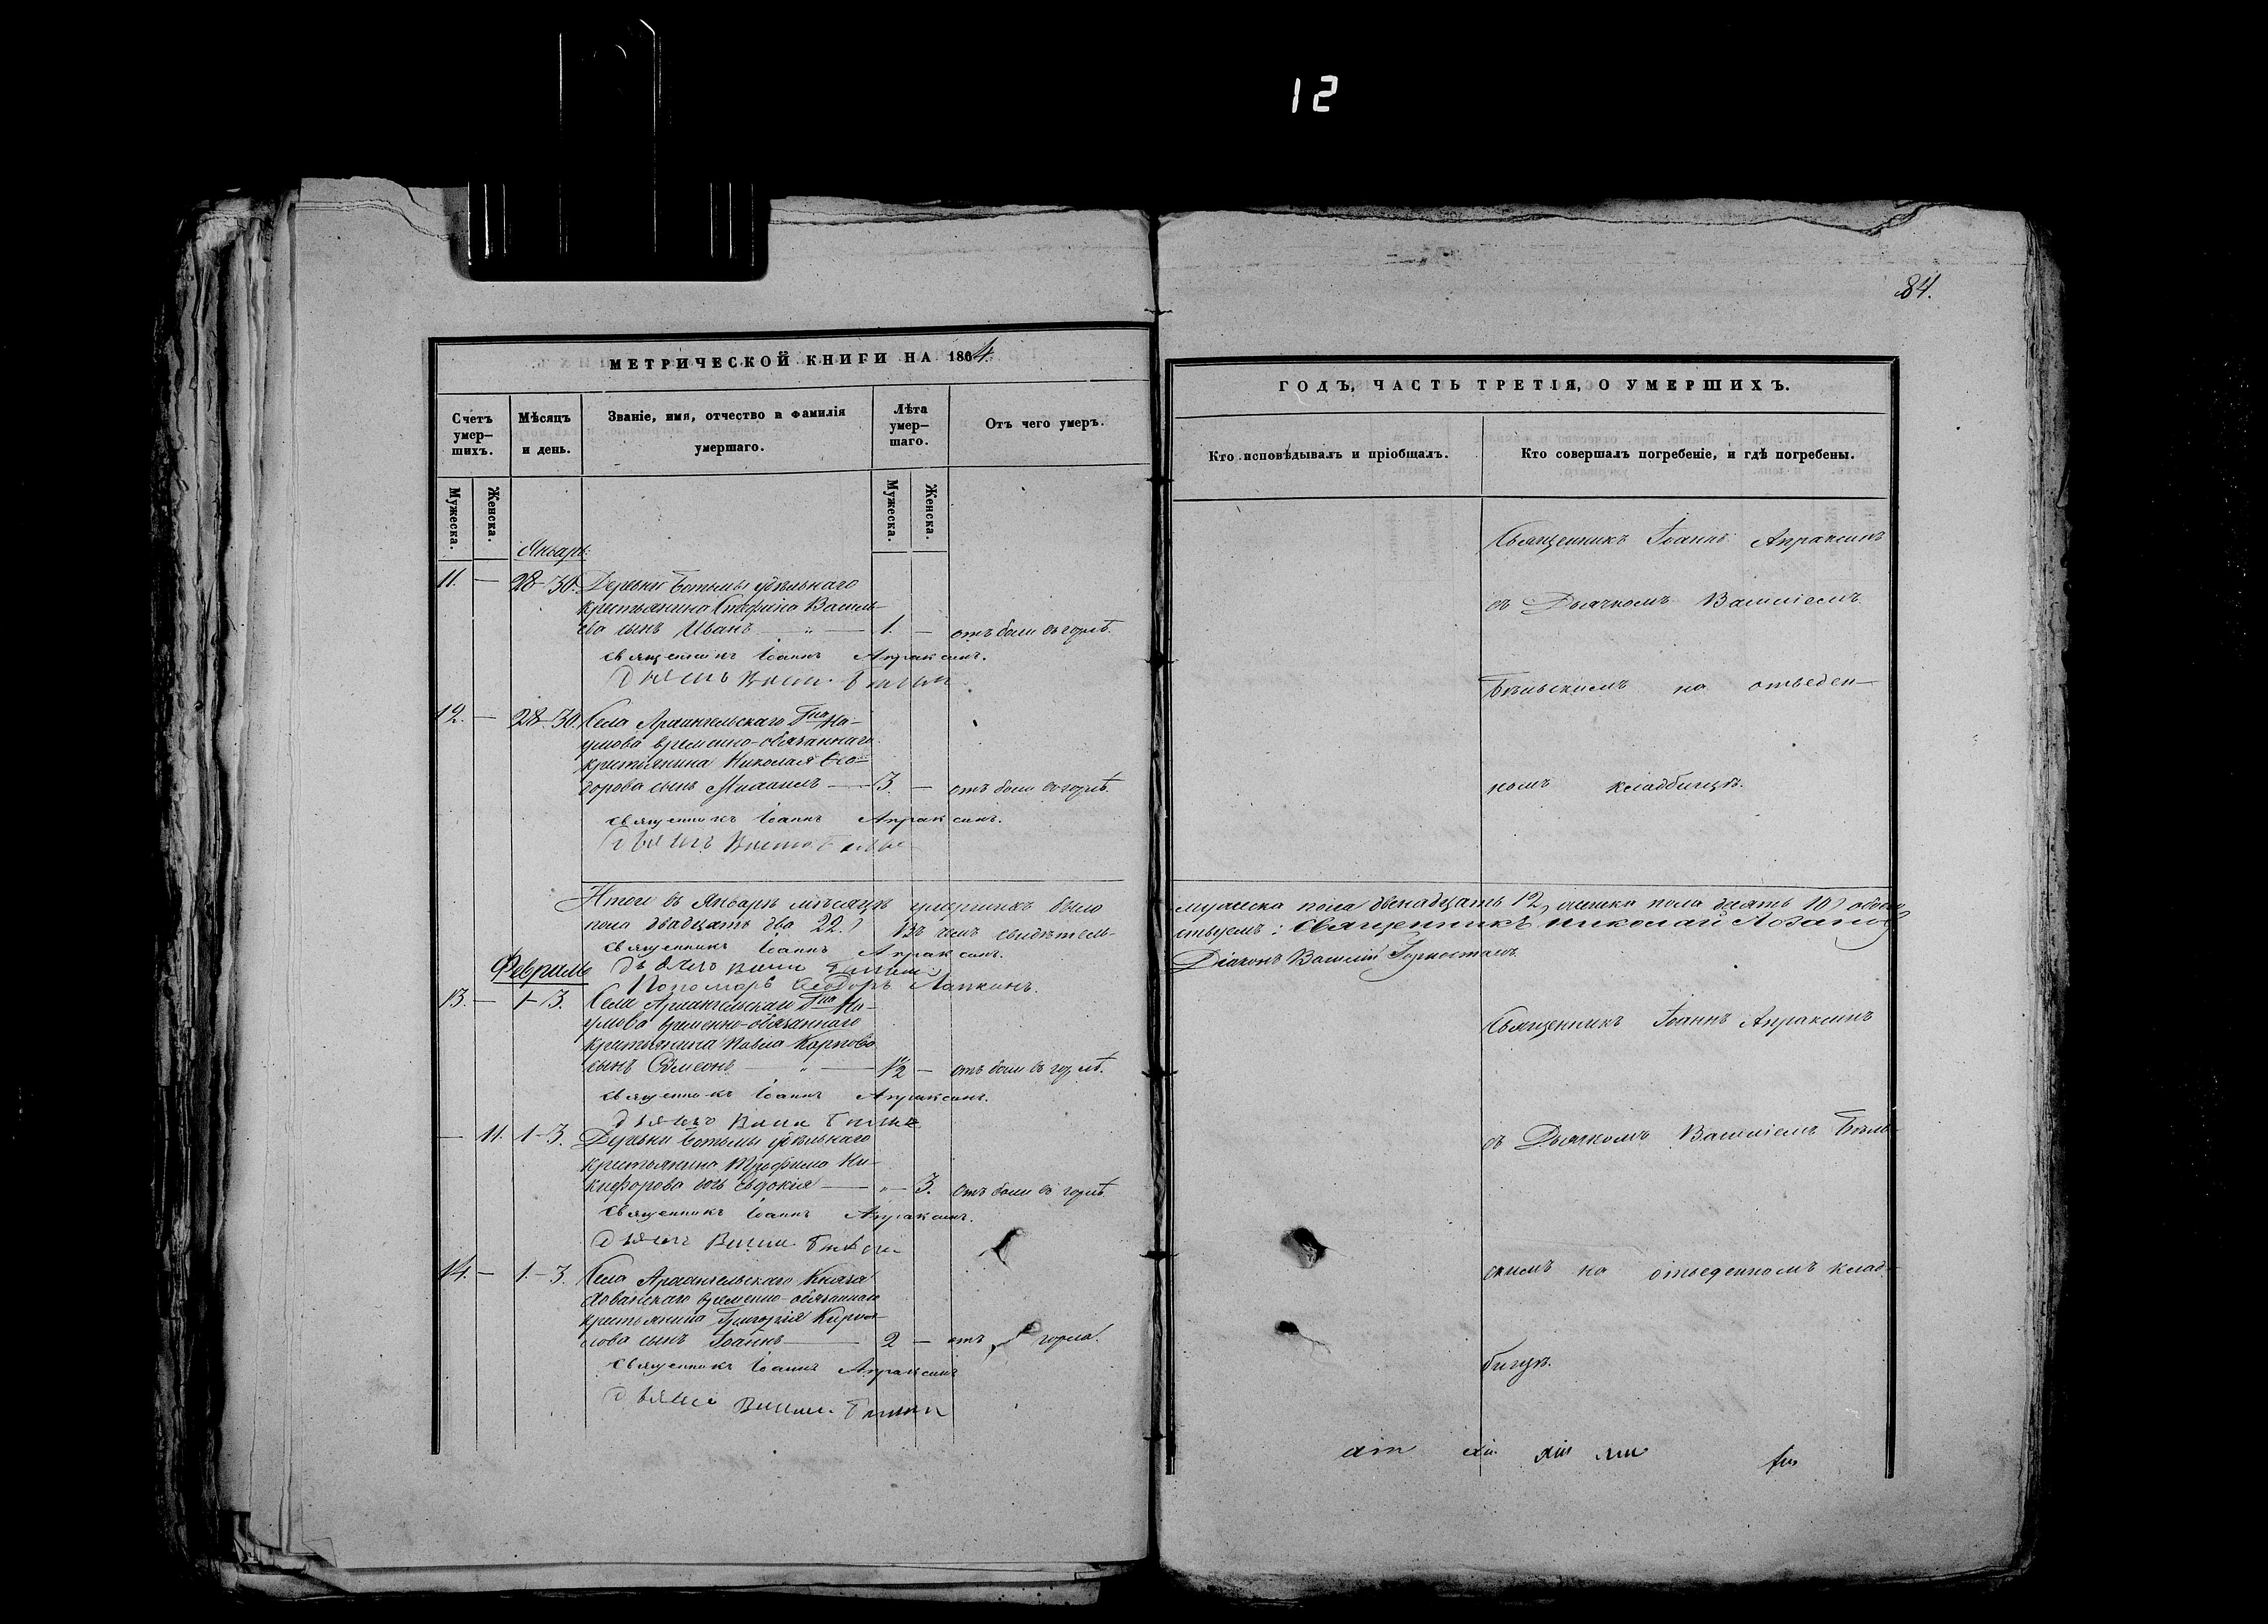 12
84.
МЕТРИЧЕСКОЙ КНИГИ НА 1864.
Счетъ умер–шихъ.
Мѣсяцъ и день.
Званіе, имя, отчество и фамилія умершаго.
Лѣта умер–шаго.
Отъ чего умеръ.
Мужеска.
Женска.
Мужеска.
Женска.
Январь.
11. — 28-30. Деревни Ботьмы удѣльнаго
крестьянина Василь-
ева сынъ Иванъ — 1. — отъ боли въ горлѣ.
Священникъ Іоаннъ Апраксинъ.
12. — 28-30. Села Архангельскаго Гна На-
умова временно-обязаннаго
крестьянина Николая Ѳео-
дорова сынъ Михаилъ — 3. — отъ боли въ горлѣ.
Священникъ Іоаннъ Апраксинъ.
Итого въ Январѣ мѣсяцѣ умершихъ было
пола двадцать два 22. Въ чемъ свидѣтель-
Священникъ Іоаннъ Апраксинъ.
Февраль
Пономарь Ѳеодоръ Лапкинъ.
13. — 1-3. Села Архангельскаго Гна На-
умова временно-обязаннаго
крестьянина Павла Карпова
сынъ Сѵмеонъ — 1/2 — отъ боли въ горлѣ.
Священникъ Іоаннъ Апраксинъ.
— 11. 1-3. Деревни Ботьмы удѣльнаго
крестьянина Трофима Ни-
кифорова дочь Евдокія — 3. отъ боли въ горлѣ
Священникъ Іоаннъ Апраксинъ.
14. — 1.-3. Села Архангельскаго Князя
Хованскаго временно-обязаннаго
крестьянина Григорія Кирил-
лова сынъ Іоаннъ — 2 — отъ горла.
Священникъ Іоаннъ Апраксинъ
ГОДЪ, ЧАСТЬ ТРЕТІЯ, О УМЕРШИХЪ.
Кто исповѣдывалъ и пріобщалъ.
Кто совершалъ погребеніе, и гдѣ погребены.
Священникъ Іоаннъ Апраксинъ
съ Дьячкомъ Василіемъ
Бѣльскимъ на отведен-
номъ кладбищѣ.
мужеска пола двенадцать 12, женска пола десять 10, обоего
ствуемъ: Священникъ Николай Лозановъ
Діаконъ Василій Горностаевъ
Священникъ Іоаннъ Апраксинъ
съ Дьячкомъ Василіемъ Бѣль-
скимъ на отведенномъ клад-
бищѣ.